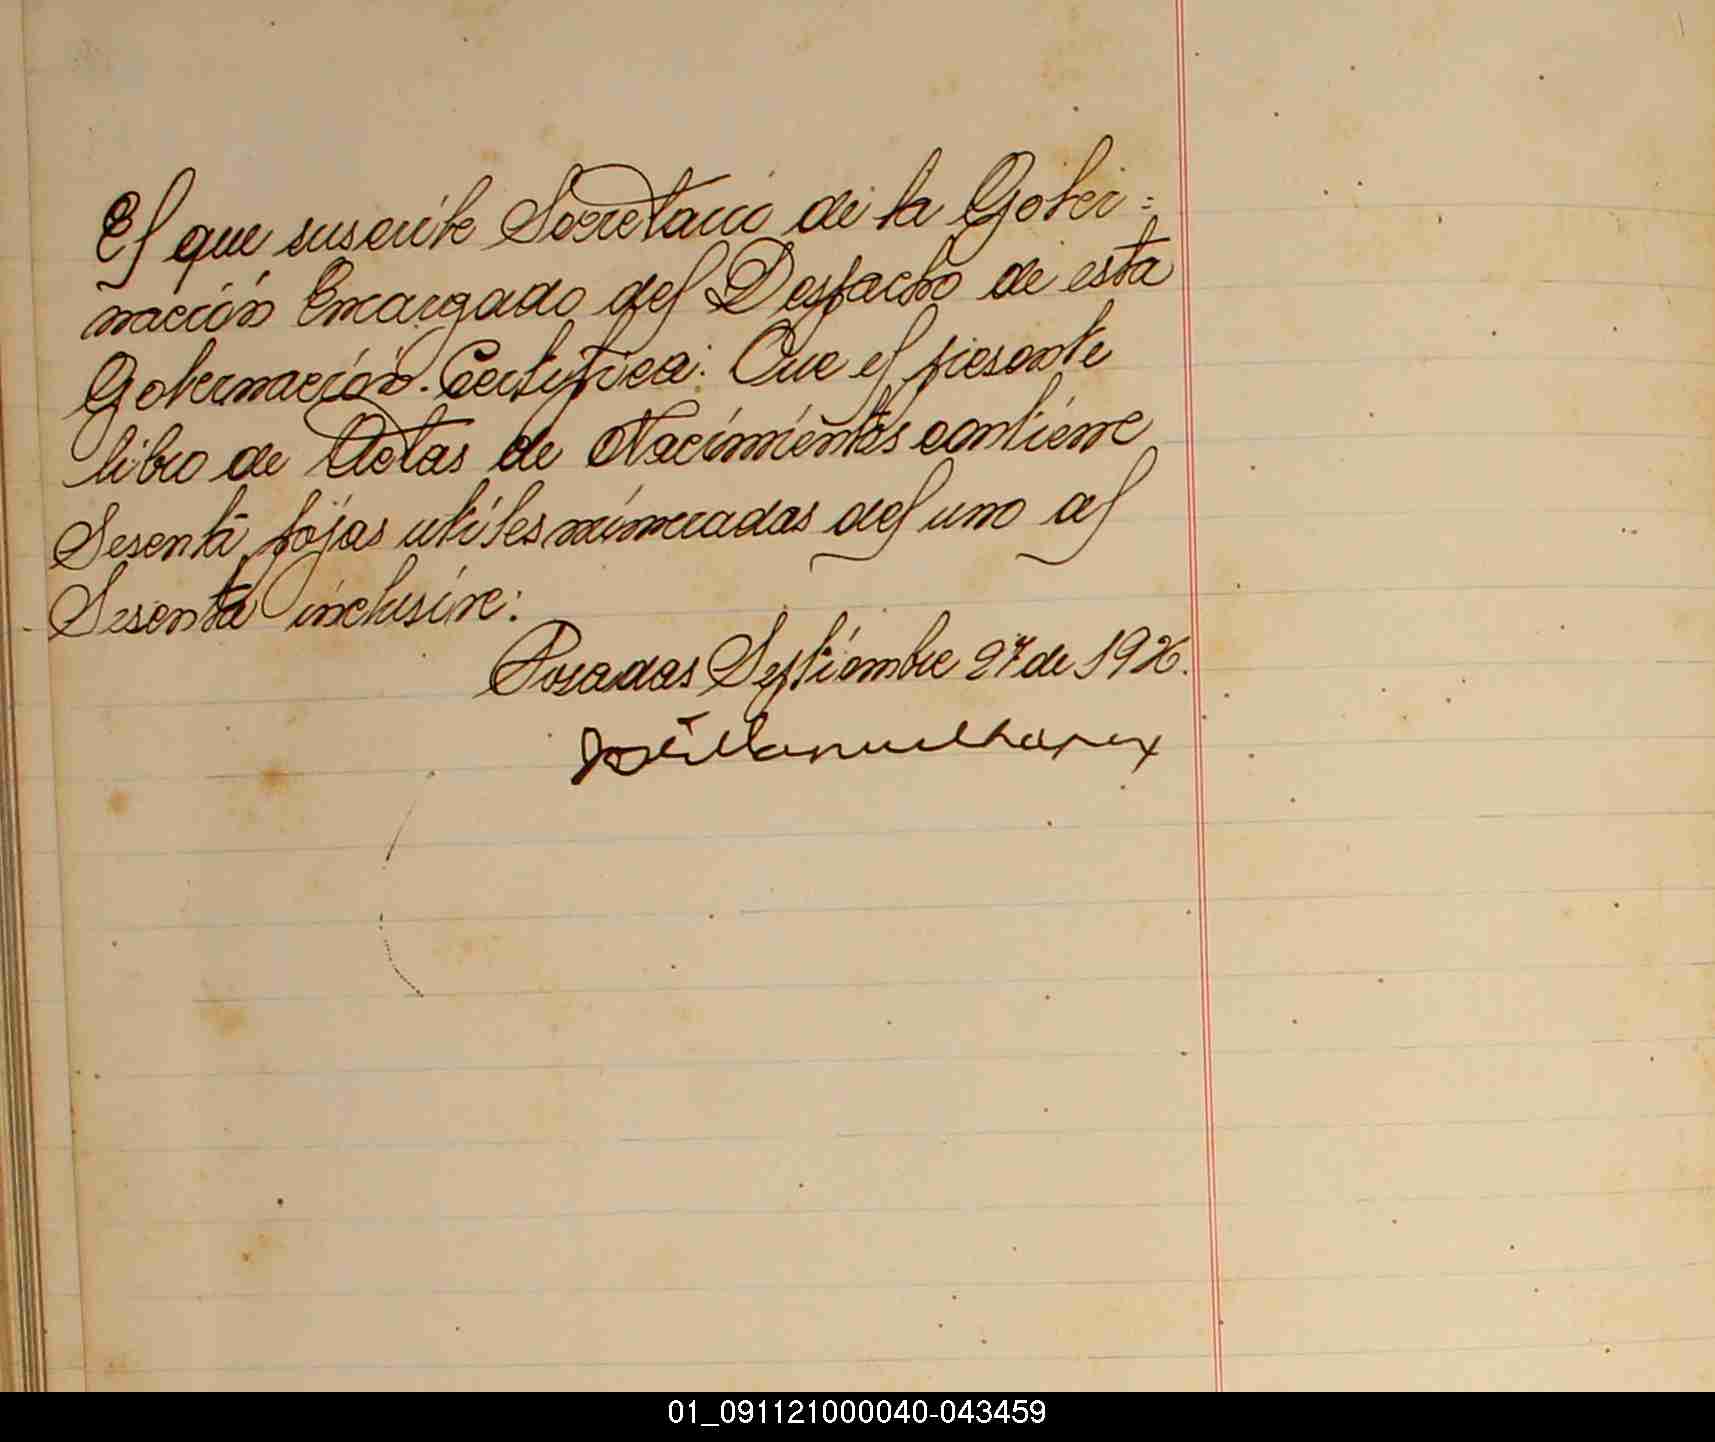 El que suscribe Secretario de la Gober=
nación Encargado del Despacho de esta
Gobernación. Certifica: Que el presente
libro de Actas de Nacimientos contiene
Sesenta fojas utiles numeradas del uno al
Sesenta inclusive:
Posadas Septiembre 27 de 1926.
01_091121000040-043459